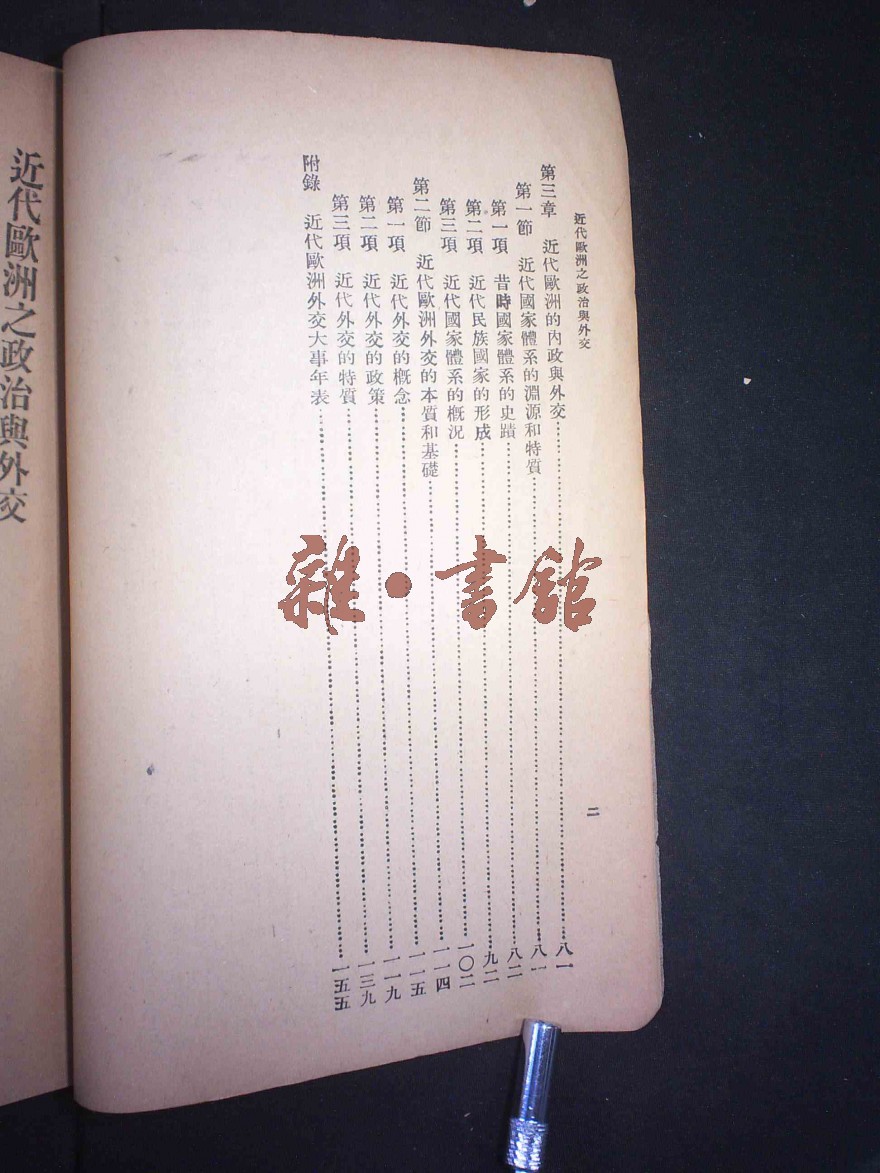 近代歐洲之政治與外交
二
第三章 近代歐洲的內政與外交……八一
第一節 近代國家體系的淵源和特質……八一
第一項 昔時國家體系的史蹟……八二
第二項 近代民族國家的形成……九二
第三項 近代國家體系的概況……一〇二
第二節 近代歐洲外交的本質和基礎……一一四
第一項 近代外交的概念……一一五
第二項 近代外交的政策……一一九
第三項 近代外交的特質……一三九
附錄 近代歐洲外交大事年表……一五五
近代歐洲之政治與外交
雜•書館